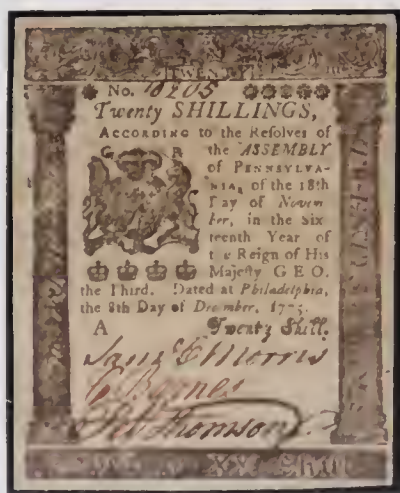 TWENTY
No. 18205
Twenty SHILLINGS,
ACCORDING to the Reſolves of
G R the ASSEMBLY
of PENNSYLVA-
NIA, of the 18th
Day of Novem-
ber, in the Six-
teenth Year of
the Reign of His
Majeſty GEO.
the Third. Dated at Philadelphia,
the 8th Day of December, 1775.
A Twenty Shill.
Sam¹ C Morris
C Barnes
Thomson
XX Shill